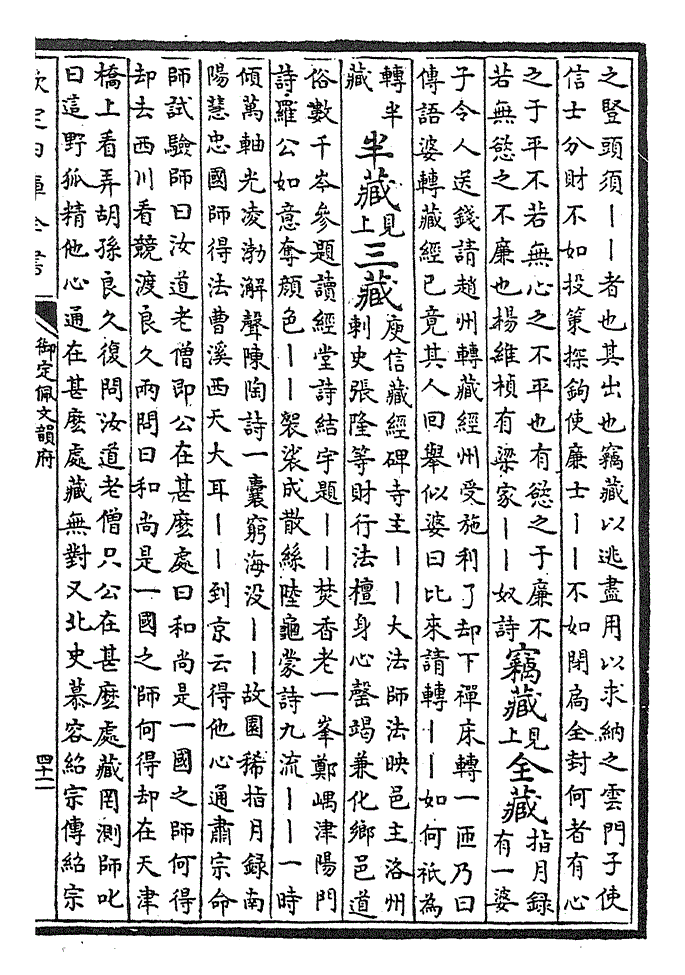 之豎頭須丨丨者也其出也竊藏以逃盡用以求納之雲門子使
信士分財不如投策探鉤使廉士丨丨不如閉扃全封何者有心
之于平不若無心之不平也有慾之于廉不
若無慾之不廉也揚維楨有梁家丨丨奴詩
竊藏見上全藏指月録
有一婆
子令人送錢請趙州轉藏經州受施利了却下禪床轉一匝乃曰
傳語婆轉藏經已竟其人回舉似婆曰比來請轉丨丨如何祇為
轉半
藏
半藏見上三藏庾信藏經碑寺主丨丨大法師法映邑主洛州
刺史張隆等財行法檀身心罄竭兼化鄉邑道
俗數千岑參題讀經堂詩結宇題丨丨焚香老一峯鄭嵎津陽門
詩羅公如意奪顔色丨丨袈裟成散絲陸龜蒙詩九流丨丨一時
傾萬軸光凌渤澥聲陳陶詩一囊窮海没丨丨故園稀指月録南
陽慧忠國師得法曹溪西天大耳丨丨到京云得他心通肅宗命
師試驗師曰汝道老僧即公在甚麽處曰和尚是一國之師何得
却去西川看競渡良久兩問曰和尚是一國之師何得却在天津
橋上看弄胡孫良久復問汝道老僧只公在甚麽處藏罔測師叱
曰這野狐精他心通在甚麽處藏無對又北史慕容紹宗傳紹宗
欽定四庫全書
御定佩文韻府
四十二